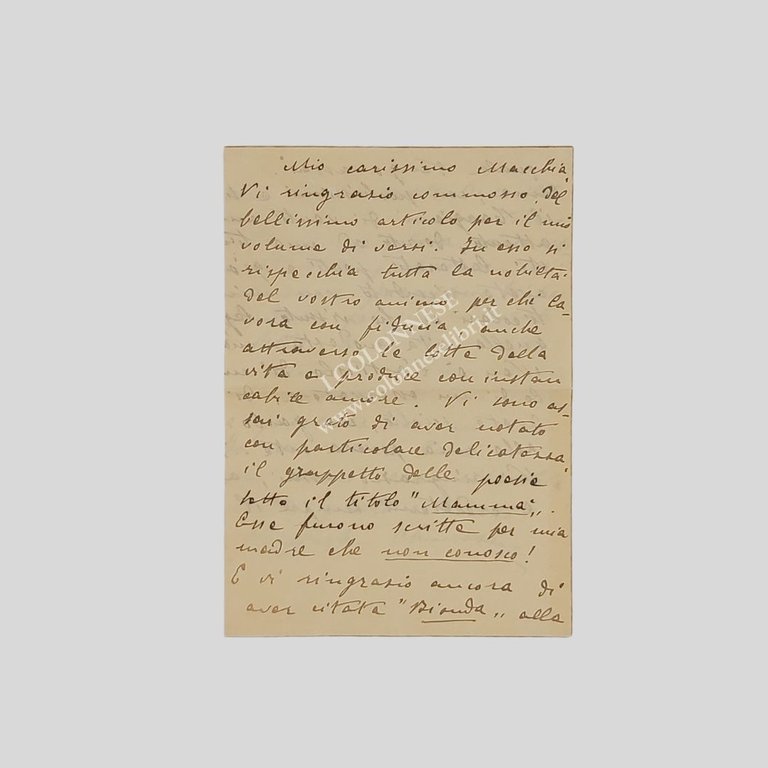 Mio carissimo Macchia,
Vi ringrazio commosso del
bellissimo articolo per il mio
volume di versi. In esso si
rispecchia tutta la nobiltà
del vostro animo, per chi la-
vora con fiducia anche
attraverso le lotte della
vita e produce con instan
cabile amore. Vi sono as-
sai grato di aver notato
con particolare delicatezza
il gruppetto delle poesie
sotto il titolo "Mamma„.
Esse furono scritte per mia
madre che non conosco!
E vi ringrazio ancora di
aver citata "Bionda„ alla
I COLONNESE
www.colonneselibri.it